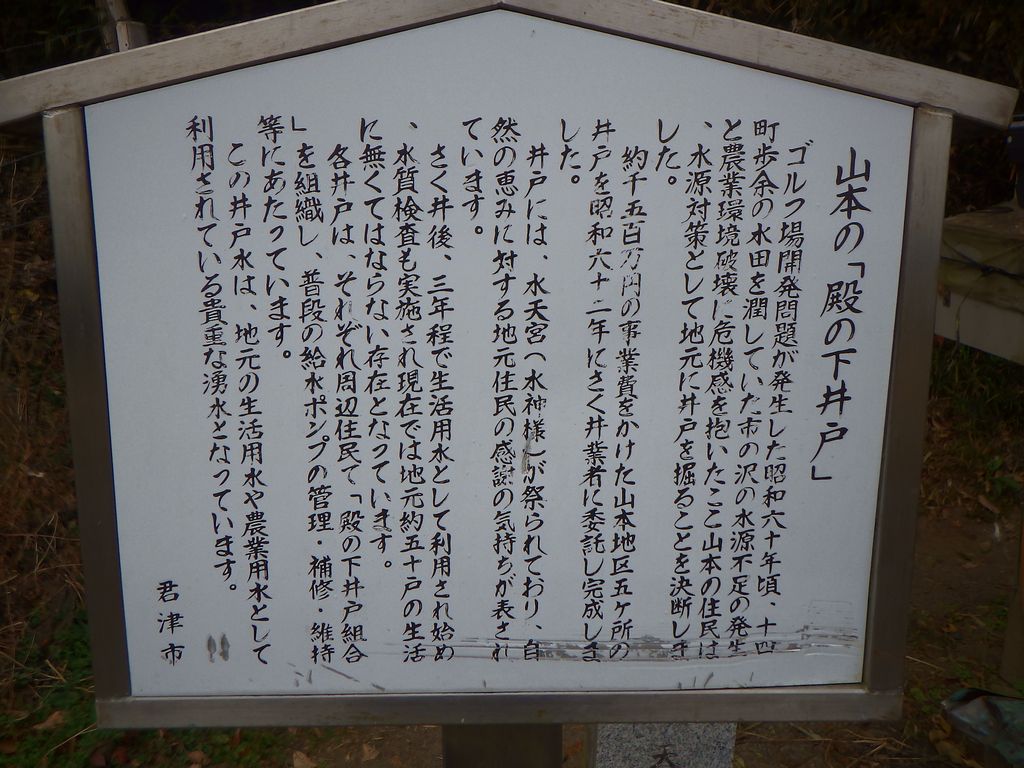 山本の「殿の下井戸」
ゴルフ場開発問題が発生した昭和六十年頃、十四
町歩余の水田を潤していた市の沢の水源不足の発生
と農業環境破壊に危機感を抱いたここ山本の住民は
、水源対策として地元に井戸を掘ることを決断しま
した。
約千五百万円の事業費をかけた山本地区五ケ所の
井戸を昭和六十二年にさく井業者に委託し完成しま
した。
井戸には、水天宮(水神様)が祭られており、自
然の恵みに対する地元住民の感謝の気持ちが表され
ています。
さく井後、三年程で生活用水として利用され始め
、水質検査も実施され現在では地元約五十戸の生活
に無くてはならない存在となっています。
各井戸は、それぞれ周辺住民で「殿の下井戸組合
」を組織し、普段の給水ポンプの管理・補修・維持
等にあたっています。
この井戸水は、地元の生活用水や農業用水として
利用されている貴重な湧水となっています。
君津市
天